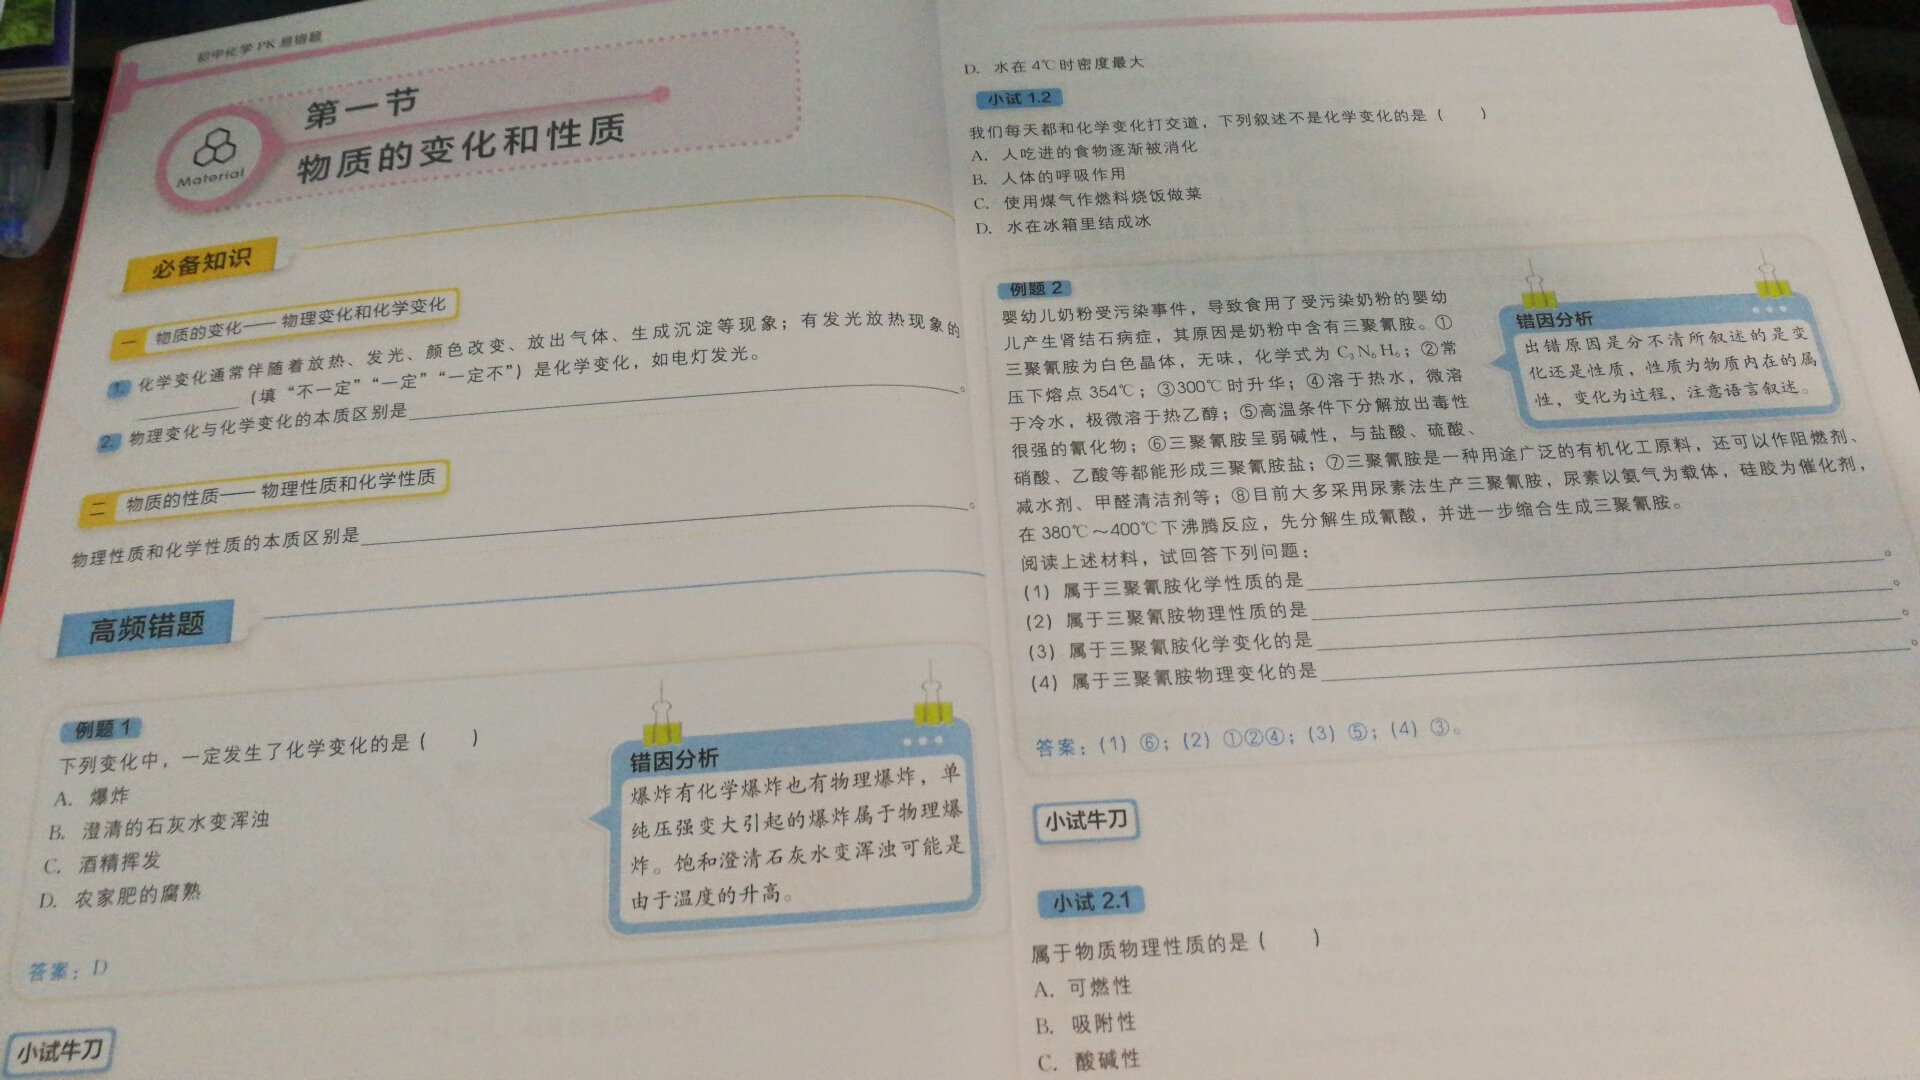 初中化学 PK 易错题
第一节
物质的变化和性质
Material
必备知识
一 物质的变化——物理变化和化学变化
1. 化学变化通常伴随着放热、发光、颜色改变、放出气体、生成沉淀等现象；有发光放热现象的
(填“不一定”“一定”“一定不”) 是化学变化，如电灯发光。
2. 物理变化与化学变化的本质区别是 。
二 物质的性质——物理性质和化学性质
物理性质和化学性质的本质区别是 。
高频错题
例题 1
下列变化中，一定发生了化学变化的是 ( )
A. 爆炸
B. 澄清的石灰水变浑浊
C. 酒精挥发
D. 农家肥的腐熟
错因分析
爆炸有化学爆炸也有物理爆炸，单
纯压强变大引起的爆炸属于物理爆
炸。饱和澄清石灰水变浑浊可能是
由于温度的升高。
答案：D
小试牛刀
D. 水在 4℃时密度最大
小试 1.2
我们每天都和化学变化打交道，下列叙述不是化学变化的是 ( )
A. 人吃进的食物逐渐被消化
B. 人体的呼吸作用
C. 使用煤气作燃料烧饭做菜
D. 水在冰箱里结成冰
例题 2
婴幼儿奶粉受污染事件，导致食用了受污染奶粉的婴幼
儿产生肾结石病症，其原因是奶粉中含有三聚氰胺。①
三聚氰胺为白色晶体，无味，化学式为 C₃N₆H₆；②常
压下熔点 354℃；③300℃时升华；④溶于热水，微溶
于冷水，极微溶于热乙醇；⑤高温条件下分解放出毒性
很强的氰化物；⑥三聚氰胺呈弱碱性，与盐酸、硫酸、
硝酸、乙酸等都能形成三聚氰胺盐；⑦三聚氰胺是一种用途广泛的有机化工原料，还可以作阻燃剂、
减水剂、甲醛清洁剂等；⑧目前大多采用尿素法生产三聚氰胺，尿素以氨气为载体，硅胶为催化剂，
在 380℃～400℃下沸腾反应，先分解生成氰酸，并进一步缩合生成三聚氰胺。
错因分析
出错原因是分不清所叙述的是变
化还是性质，性质为物质内在的属
性，变化为过程，注意语言叙述。
阅读上述材料，试回答下列问题：
(1) 属于三聚氰胺化学性质的是 。
(2) 属于三聚氰胺物理性质的是 。
(3) 属于三聚氰胺化学变化的是 。
(4) 属于三聚氰胺物理变化的是 。
答案：(1) ⑥；(2) ①②④；(3) ⑤；(4) ③。
小试牛刀
小试 2.1
属于物质物理性质的是 ( )
A. 可燃性
B. 吸附性
C. 酸碱性